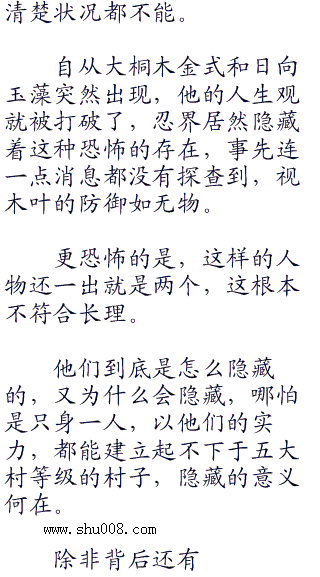 清楚状况都不能。
自从大桐木金式和日向
玉藻突然出现，他的人生观
就被打破了，忍界居然隐藏
着这种恐怖的存在，事先连
一点消息都没有探查到，视
木叶的防御如无物。
更恐怖的是，这样的人
物还一出就是两个，这根本
不符合长理。
他们到底是怎么隐藏
的，又为什么会隐藏，哪怕
是只身一人，以他们的实
力，都能建立起不下于五大
村等级的村子，隐藏的意义
何在。
www.shu008.com
除非背后还有